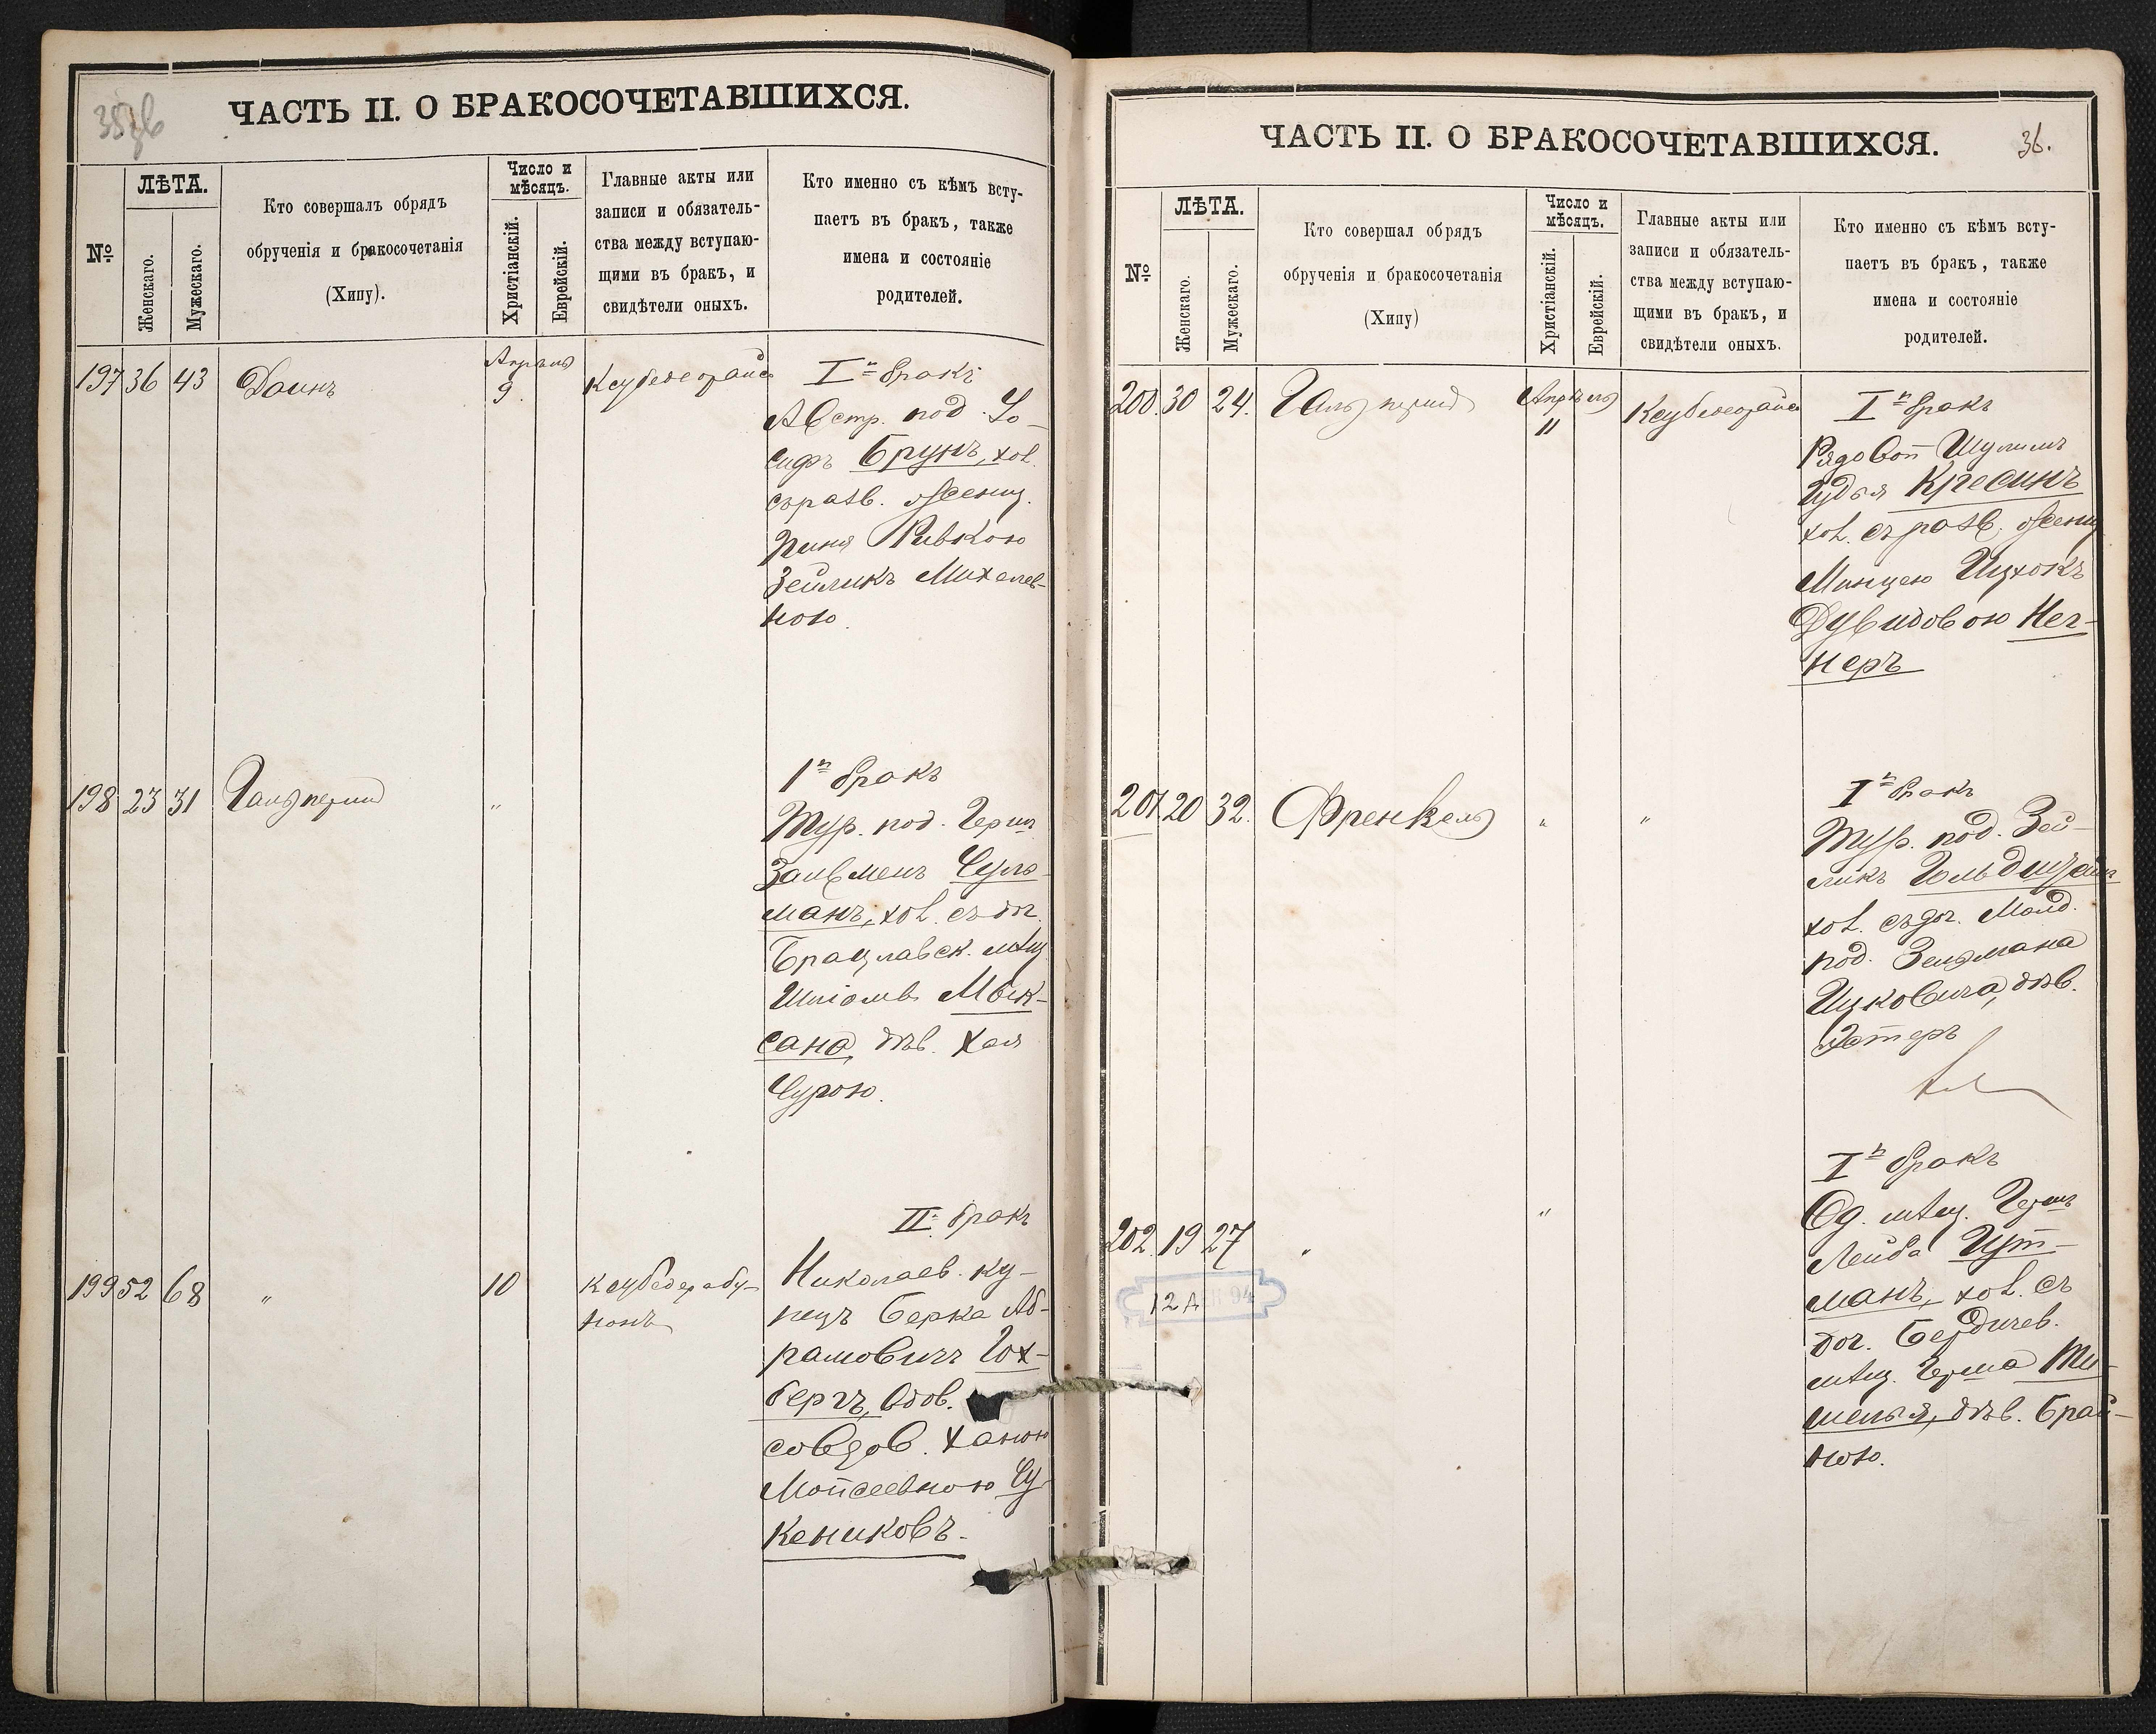 35об
ЧАСТЬ II. О БРАКОСОЧЕТАВШИХСЯ.
№
ЛѢТА.
Женскаго.
Мужескаго.
Кто совершалъ обрядъ
обрученія и бракосочетанія
(Хипу).
Число и
мѣсяцъ.
Христіанскій.
Еврейскій.
Главные акты или
записи и обязатель-
ства между вступаю-
щими въ бракъ, и
свидѣтели оныхъ.
Кто именно съ кѣмъ всту-
паетъ въ бракъ, также
имена и состояніе
родителей.
197 36 43 Даинъ
Апрель
9
I й бракъ
Австр. под. Іо-
сифъ Брунъ, хол.
съ разв. жениц.
Ривкою
Зейликъ Михелев-
ною.
198 23 31 Гальперинъ "
I й бракъ
Тур. под. Герш
Залменъ Сура-
манъ, хол. съ доч.
Брацлавск. мѣщ.
дѣв. Хая
Сурою.
199 52 68 " 10
II. бракъ
Николаев. ку-
пецъ Берка Аб-
рамовичъ Гох-
бергъ, вдов.
со вдов. Ханою
Моисеевною Су-
кениковъ.
ЧАСТЬ II. О БРАКОСОЧЕТАВШИХСЯ.
36.
№
ЛѢТА.
Женскаго.
Мужескаго.
Кто совершал обрядъ
обрученія и бракосочетанія
(Хипу)
Число и
мѣсяцъ.
Христіанскій.
Еврейскій.
Главные акты или
записи и обязатель-
ства между вступаю-
щими въ бракъ, и
свидѣтели оныхъ.
Кто именно съ кѣмъ всту-
паетъ въ бракъ, также
имена и состояніе
родителей.
200. 30 24. Гальперинъ
Апрѣль
11
I й бракъ
Рядовой Шулимъ
Іудья Кресинъ
хол. съ разв. жениц.
Минцею Ицхокъ
Дувидовою Нег-
неръ
201. 20 32. Френкель " "
I й бракъ
Тур. под. Зей-
ликъ Гольдштейнъ
хол. съ доч. Молд.
под. Зельмана
Ицковича, дѣв.
Эстеръ
202. 19 27 " "
I й бракъ
Од. мѣщ. Герш
Лейба Гут-
манъ, хол. съ
доч. Бердичев.
мѣщ. Герша
дѣв. Брай-
ною.
12 94